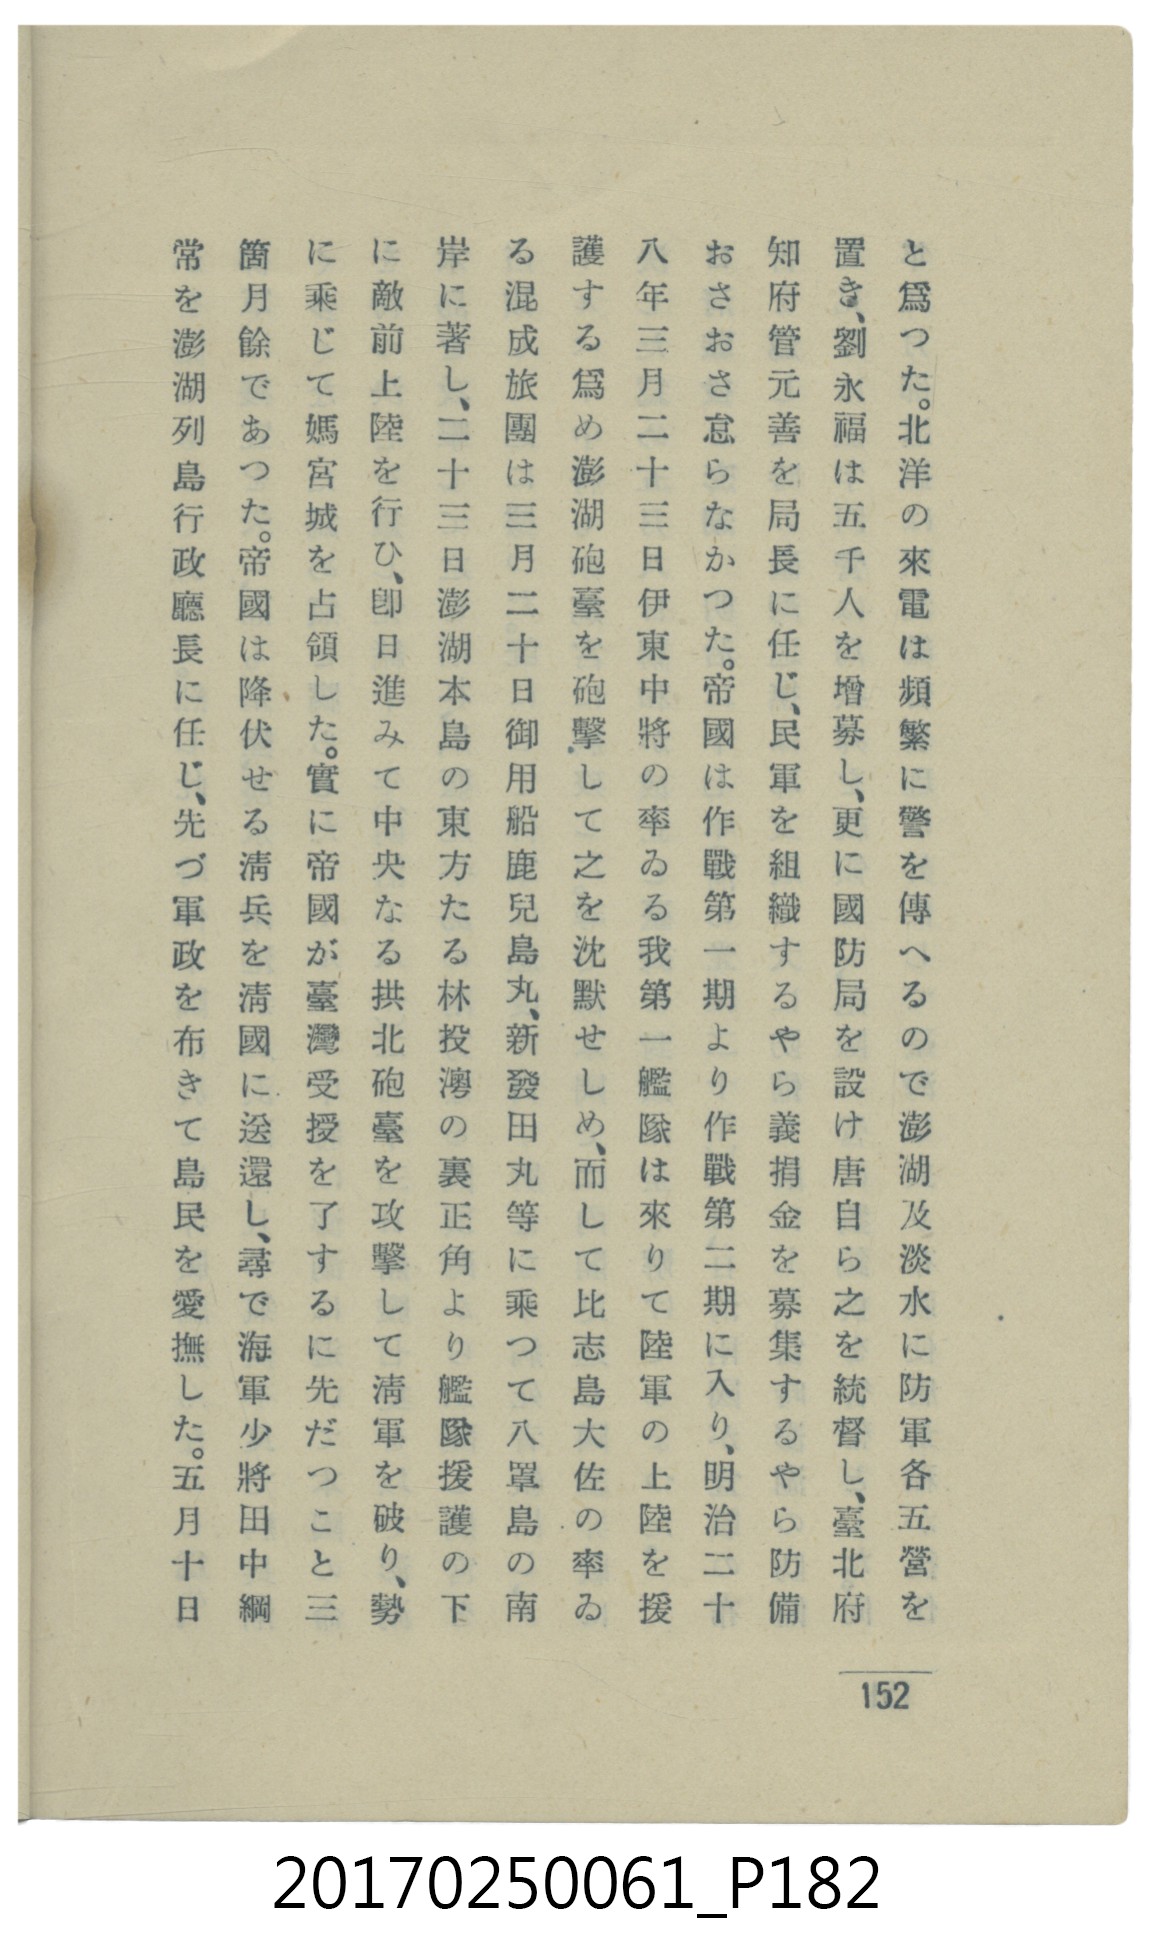 と爲つた。北洋の來電は頻繁に警を傳へるので澎湖及淡水に防軍各五營を
置き、劉永福は五千人を增募し、更に國防局を設け唐自ら之を統督し、臺北府
知府管元善を局長に任じ、民軍を組織するやら義捐金を募集するやら防備
おさおさ怠らなかつた。帝國は作戰第一期より作戰第二期に入り、明治二十
八年三月二十三日伊東中將の率ゐる我第一艦隊は來りて陸軍の上陸を援
護する爲め澎湖砲臺を砲擊して之を沈默せしめ、而して比志島大佐の率ゐ
る混成旅團は三月二十日御用船鹿兒島丸、新發田丸等に乘つて八罩島の南
岸に著し、二十三日澎湖本島の東方たる林投澳の裏正角より艦隊援護の下
に敵前上陸を行ひ、卽日進みて中央なる拱北砲臺を攻擊して淸軍を破り、勢
に乘じて媽宮城を占領した。實に帝國が臺灣受授を了するに先だつこと三
箇月餘であつた。帝國は降伏せる淸兵を淸國に送還し、尋で海軍少將田中綱
常を澎湖列島行政廳長に任じ、先づ軍政を布きて島民を愛撫した。五月十日
152
20170250061_P182